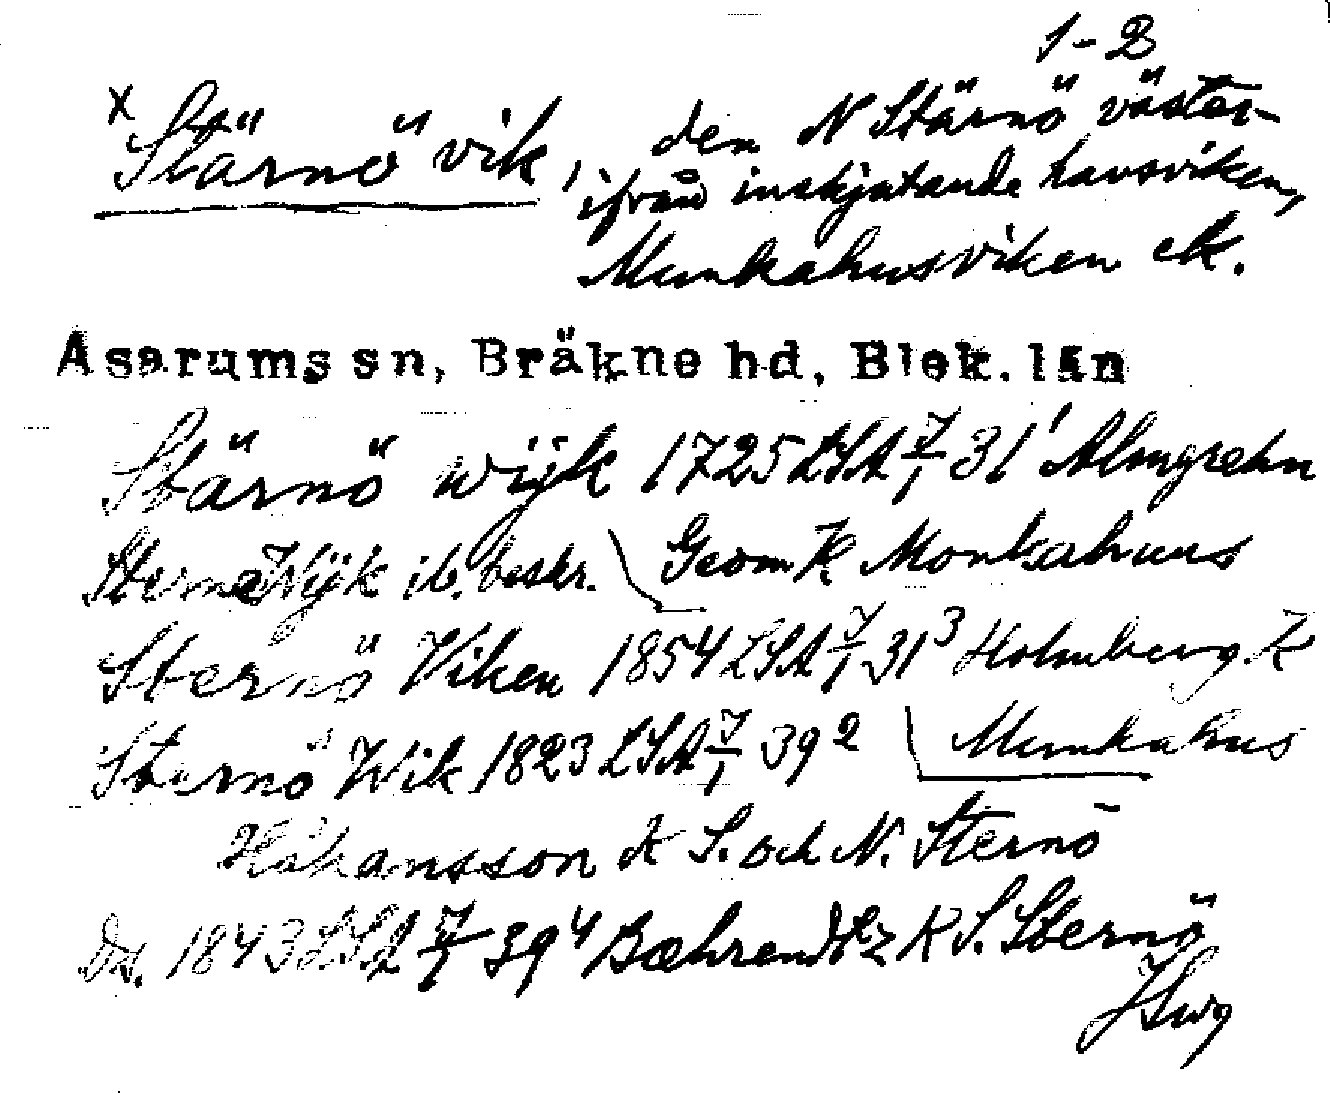 1-2
x Stärnö vik, den N Stärnö väster-
ifrån inskjutande havsviken,
Munkahusviken ek.
Asarums sn, Bräkne hd, Blek. län
Stärnö wijk 1725 LSA 7/1 31¹ Almgrehn
Sterne Wijk ib. beskr. Geom K Monkahuus
Sternö Viken 1854 LSA 7/1 31³ Holmberg K
Munkahus
Sternö Wik 1823 LSA 7/1 39²
Håkansson K S. och N. Sternö
Ds. 1843 LSA 7/1 39⁴ Bæhrendtz K S. Sternö